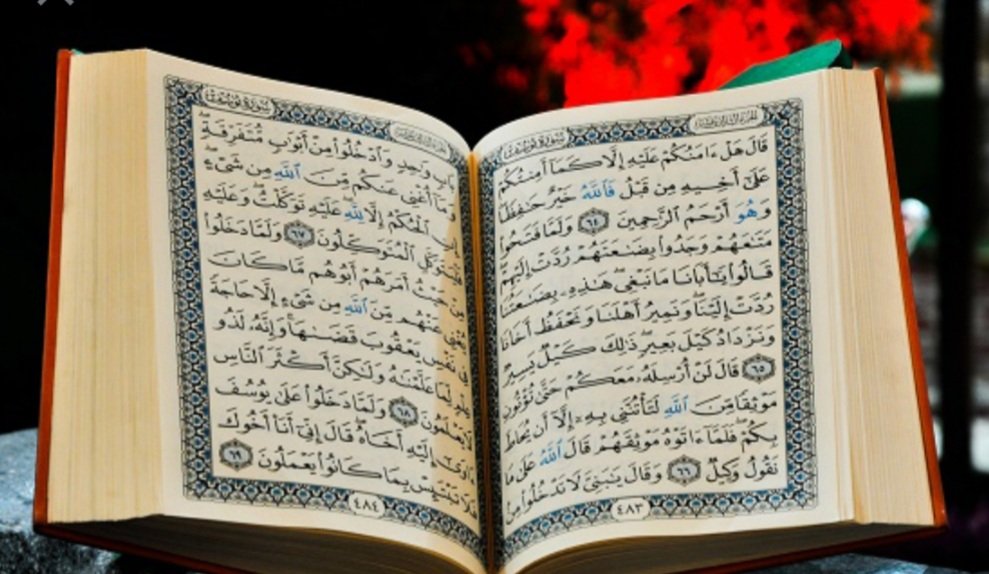 الجزء الثالث عشر
سورة يوسف
قَالَ هَلْ ءَامَنُكُمْ عَلَيْهِ إِلَّا كَمَآ أَمِنتُكُمْ
عَلَىٰٓ أَخِيهِ مِن قَبْلُ فَٱللَّهُ خَيْرٌ حَٰفِظًا
وَهُوَ أَرْحَمُ ٱلرَّٰحِمِينَ ٦٤ وَلَمَّا فَتَحُوا۟
مَتَٰعَهُمْ وَجَدُوا۟ بِضَٰعَتَهُمْ رُدَّتْ إِلَيْهِمْ
قَالُوا۟ يَٰٓأَبَانَا مَا نَبْغِى ۖ هَٰذِهِۦ بِضَٰعَتُنَا
رُدَّتْ إِلَيْنَا ۖ وَنَمِيرُ أَهْلَنَا وَنَحْفَظُ أَخَانَا
وَنَزْدَادُ كَيْلَ بَعِيرٍ ۖ ذَٰلِكَ كَيْلٌ يَسِيرٌ
٦٥ قَالَ لَنْ أُرْسِلَهُۥ مَعَكُمْ حَتَّىٰ تُؤْتُونِ
مَوْثِقًا مِّنَ ٱللَّهِ لَتَأْتُنَّنِى بِهِۦٓ إِلَّآ أَن يُحَاطَ
بِكُمْ ۖ فَلَمَّآ ءَاتَوْهُ مَوْثِقَهُمْ قَالَ ٱللَّهُ عَلَىٰ مَا
نَقُولُ وَكِيلٌ ٦٦ وَقَالَ يَٰبَنِىَّ لَا تَدْخُلُوا۟ مِنۢ
٤٨٣
الجزء الثالث عشر
سورة يوسف
بَابٍ وَٰحِدٍ وَٱدْخُلُوا۟ مِنْ أَبْوَٰبٍ مُّتَفَرِّقَةٍ ۖ
وَمَآ أُغْنِى عَنكُم مِّنَ ٱللَّهِ مِن شَىْءٍ ۖ
إِنِ ٱلْحُكْمُ إِلَّا لِلَّهِ ۖ عَلَيْهِ تَوَكَّلْتُ ۖ وَعَلَيْهِ
فَلْيَتَوَكَّلِ ٱلْمُتَوَكِّلُونَ ٦٧ وَلَمَّا دَخَلُوا۟
مِنْ حَيْثُ أَمَرَهُمْ أَبُوهُم مَّا كَانَ
يُغْنِى عَنْهُم مِّنَ ٱللَّهِ مِن شَىْءٍ إِلَّا حَاجَةً
فِى نَفْسِ يَعْقُوبَ قَضَىٰهَا ۚ وَإِنَّهُۥ لَذُو
عِلْمٍ لِّمَا عَلَّمْنَٰهُ وَلَٰكِنَّ أَكْثَرَ ٱلنَّاسِ
لَا يَعْلَمُونَ ٦٨ وَلَمَّا دَخَلُوا۟ عَلَىٰ يُوسُفَ
ءَاوَىٰٓ إِلَيْهِ أَخَاهُ ۖ قَالَ إِنِّىٓ أَنَا۠ أَخُوكَ
فَلَا تَبْتَئِسْ بِمَا كَانُوا۟ يَعْمَلُونَ ٦٩
٤٨٤